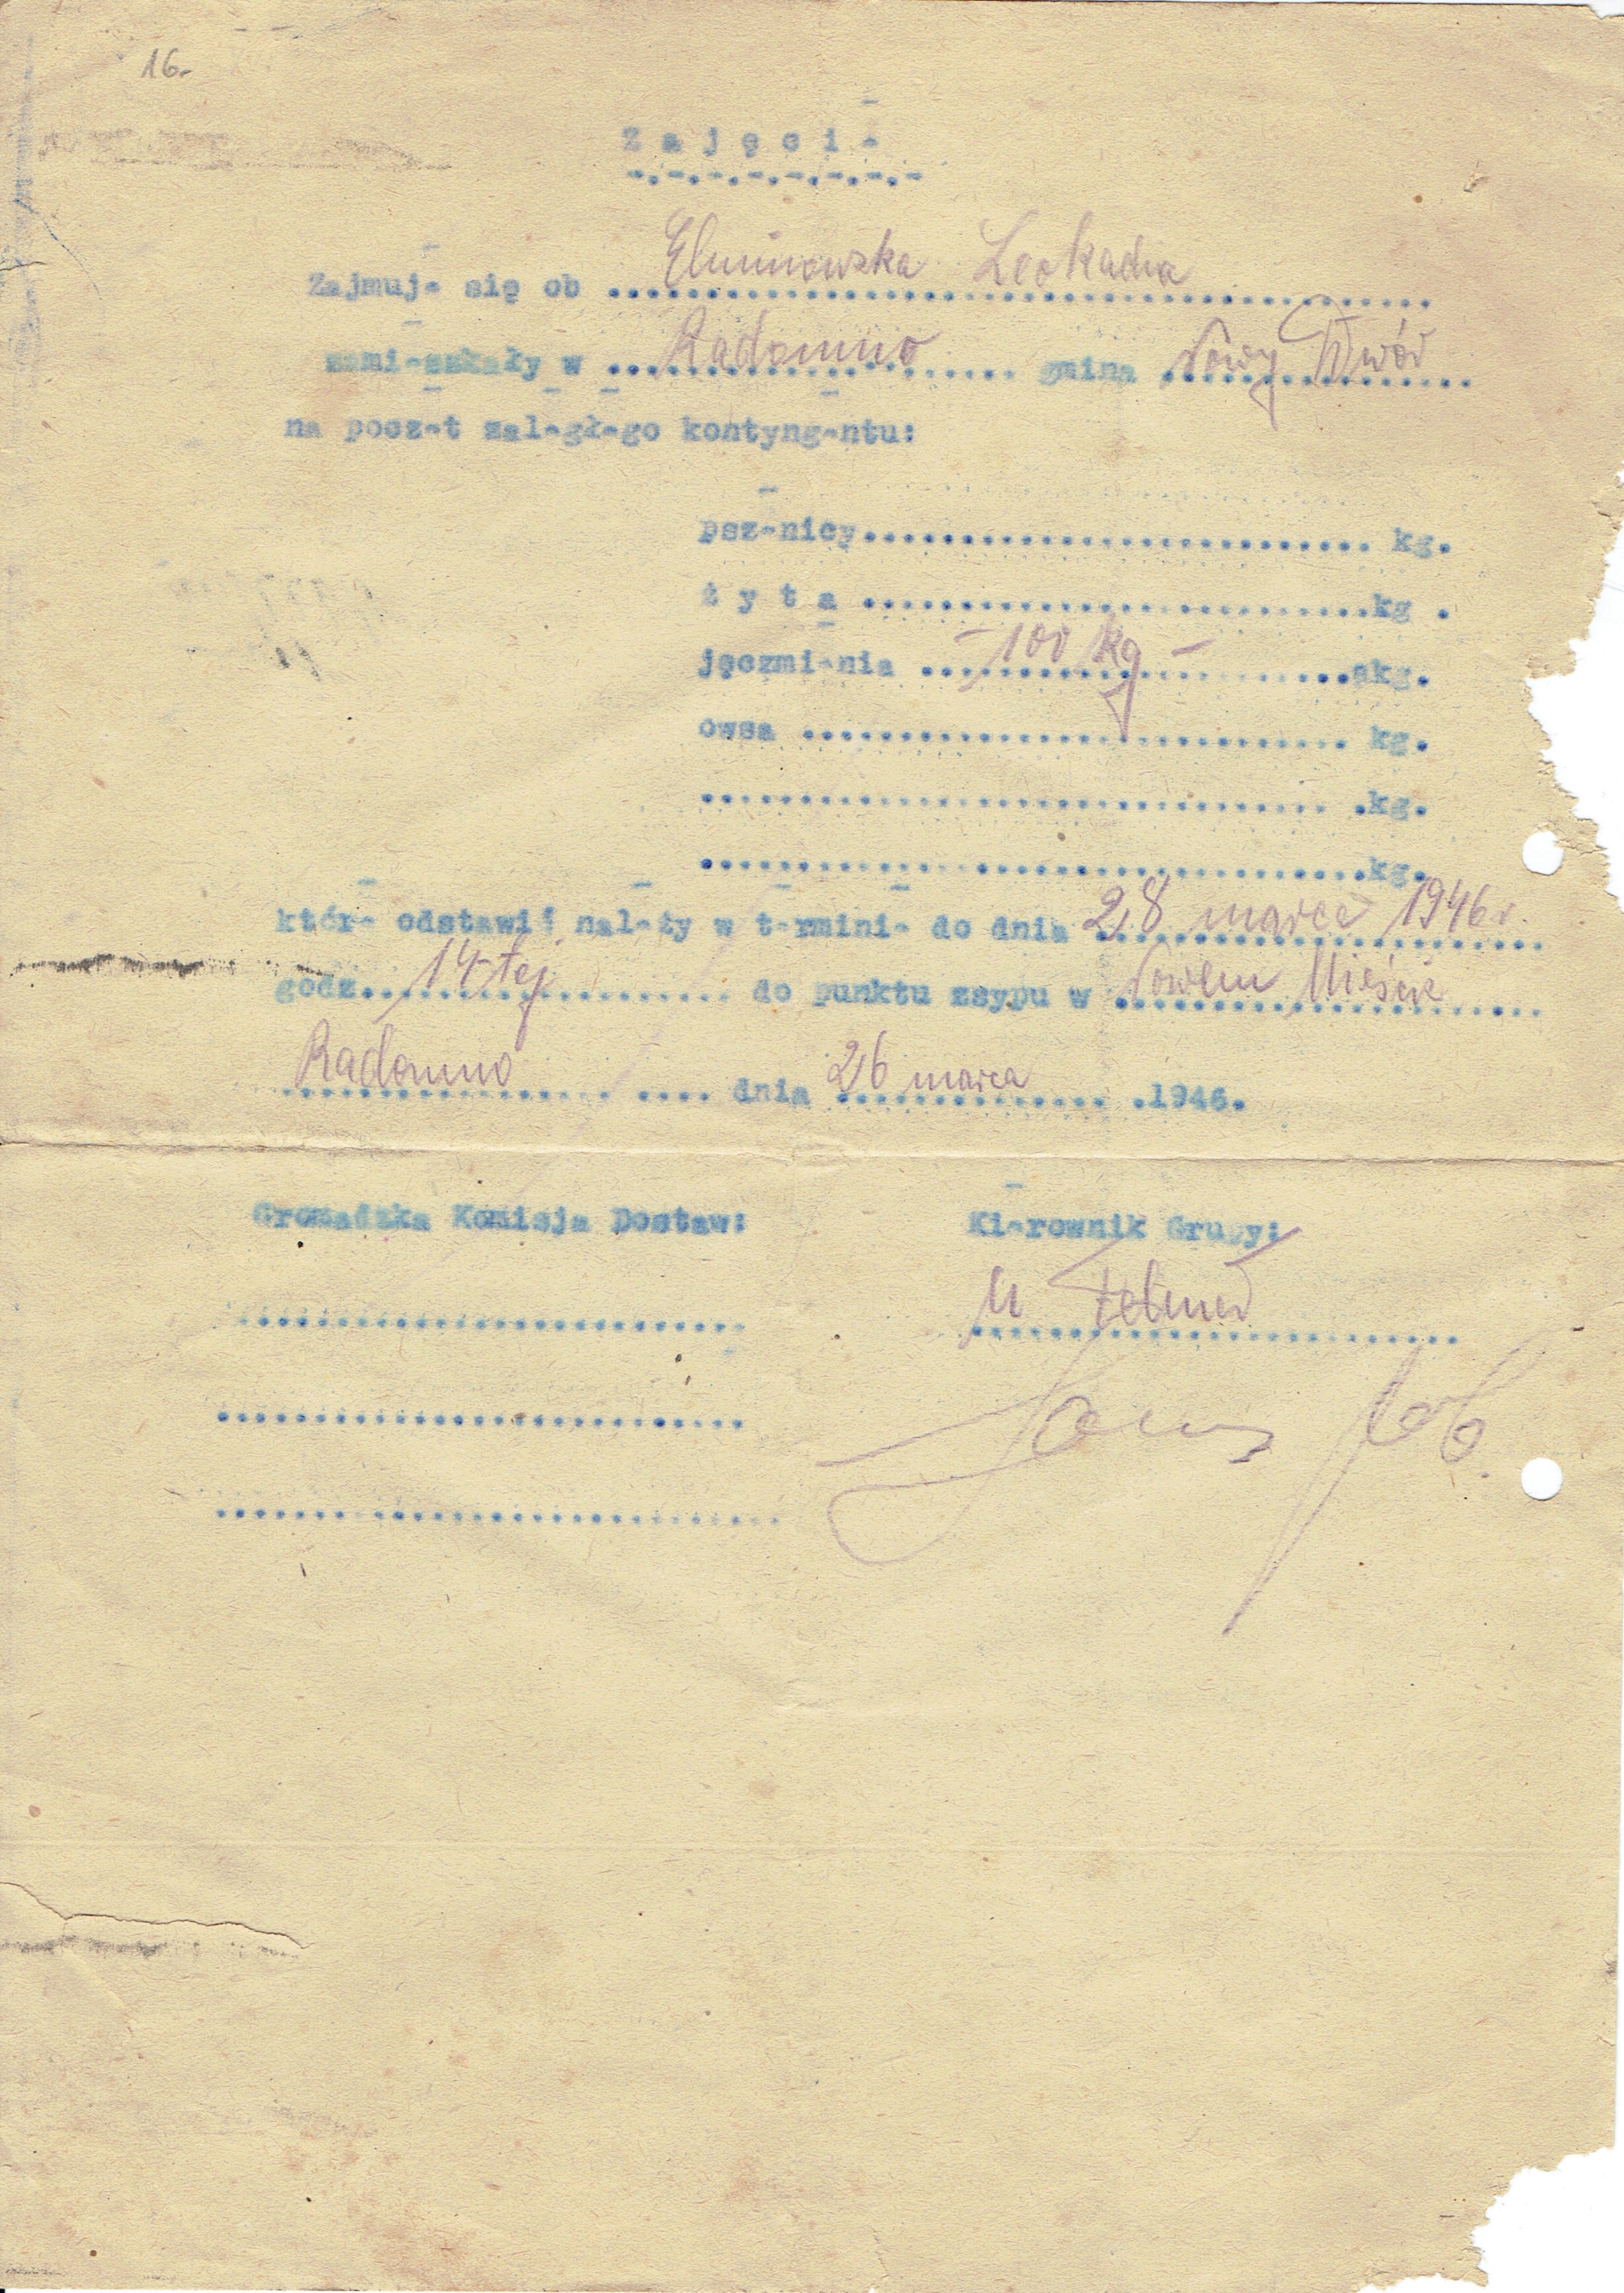 16.
Zajęcie
-.-.-.-.-.-.-.-
Zajmuje się ob ........ Leokadia
zamieszkały w ........ Radomno gmina ........ Nowy Dwór
na poczet zaległego kontyngentu:
pszenicy........ kg.
ż y t a ........kg .
jęczmienia ........ - 100 kg - kg.
owsa ........ kg.
........ .kg.
........kg.
które odstawić należy w terminie do dnia 28 marca 1946 r.
godz. 14-tej ........ do punktu zsypu w Nowem Mieście
Radomno ........ dnia 26 marca .1946.
Gromadzka Komisja Dostaw: Kierownik Grupy: